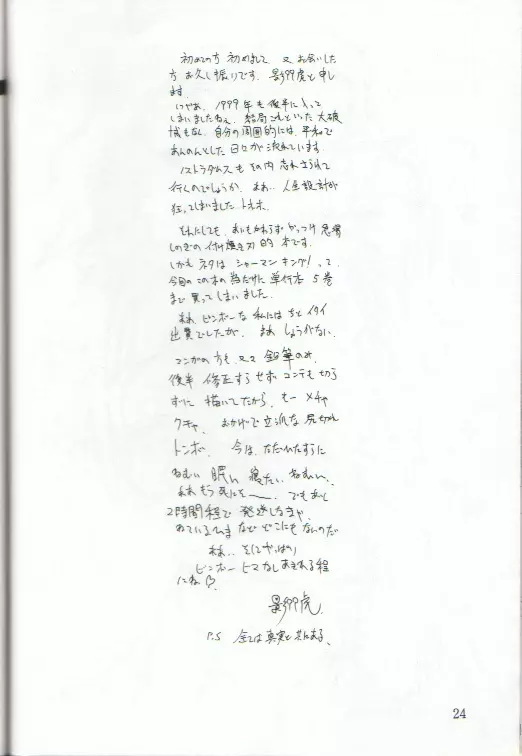 初めての方 初めまして 又 お会いした
方 お久し振りです。影夘虎と申し
ます。
いやあ、1999年も後半に入って
しまいましたねえ。結局これといった大破
滅もなく、自分の周囲的には、平和で
あんのんとした日々が流れています。
ノストラダムスもその内忘れ去られて
行くのでしょうか。まあ… 人生設計が
狂ってしまいました。トホホ。
それにしても、あいもかわらずやっつけ
しのぎの 的 本です。
しかも ネタは シャーマンキング!って、
今回のこの本の為だけに単行本5巻
まで買ってしまいました。
まあ、ビンボーな私にはちとイタイ
出費でしたが、まあしょうがない。
マンガの方も、又々鉛筆のみ。
後半 修正すらせず コンテも切ら
ずに 描いてたから、もー メチャ
クチャ。おかげで立派な尻切れ
トンボ。今は、ただひたすらに
ねむい 眠い 寝たい ねむい、
ああ もう 死にそ〜。でもあと
2時間程で 発送しなきゃ。
ねているひまなどどこにもないのだ
ああ… そしてやっぱり
ビンボーヒマなしあきれる程
にね♡
影夘虎
P.S 全ては真実と共にある、
24